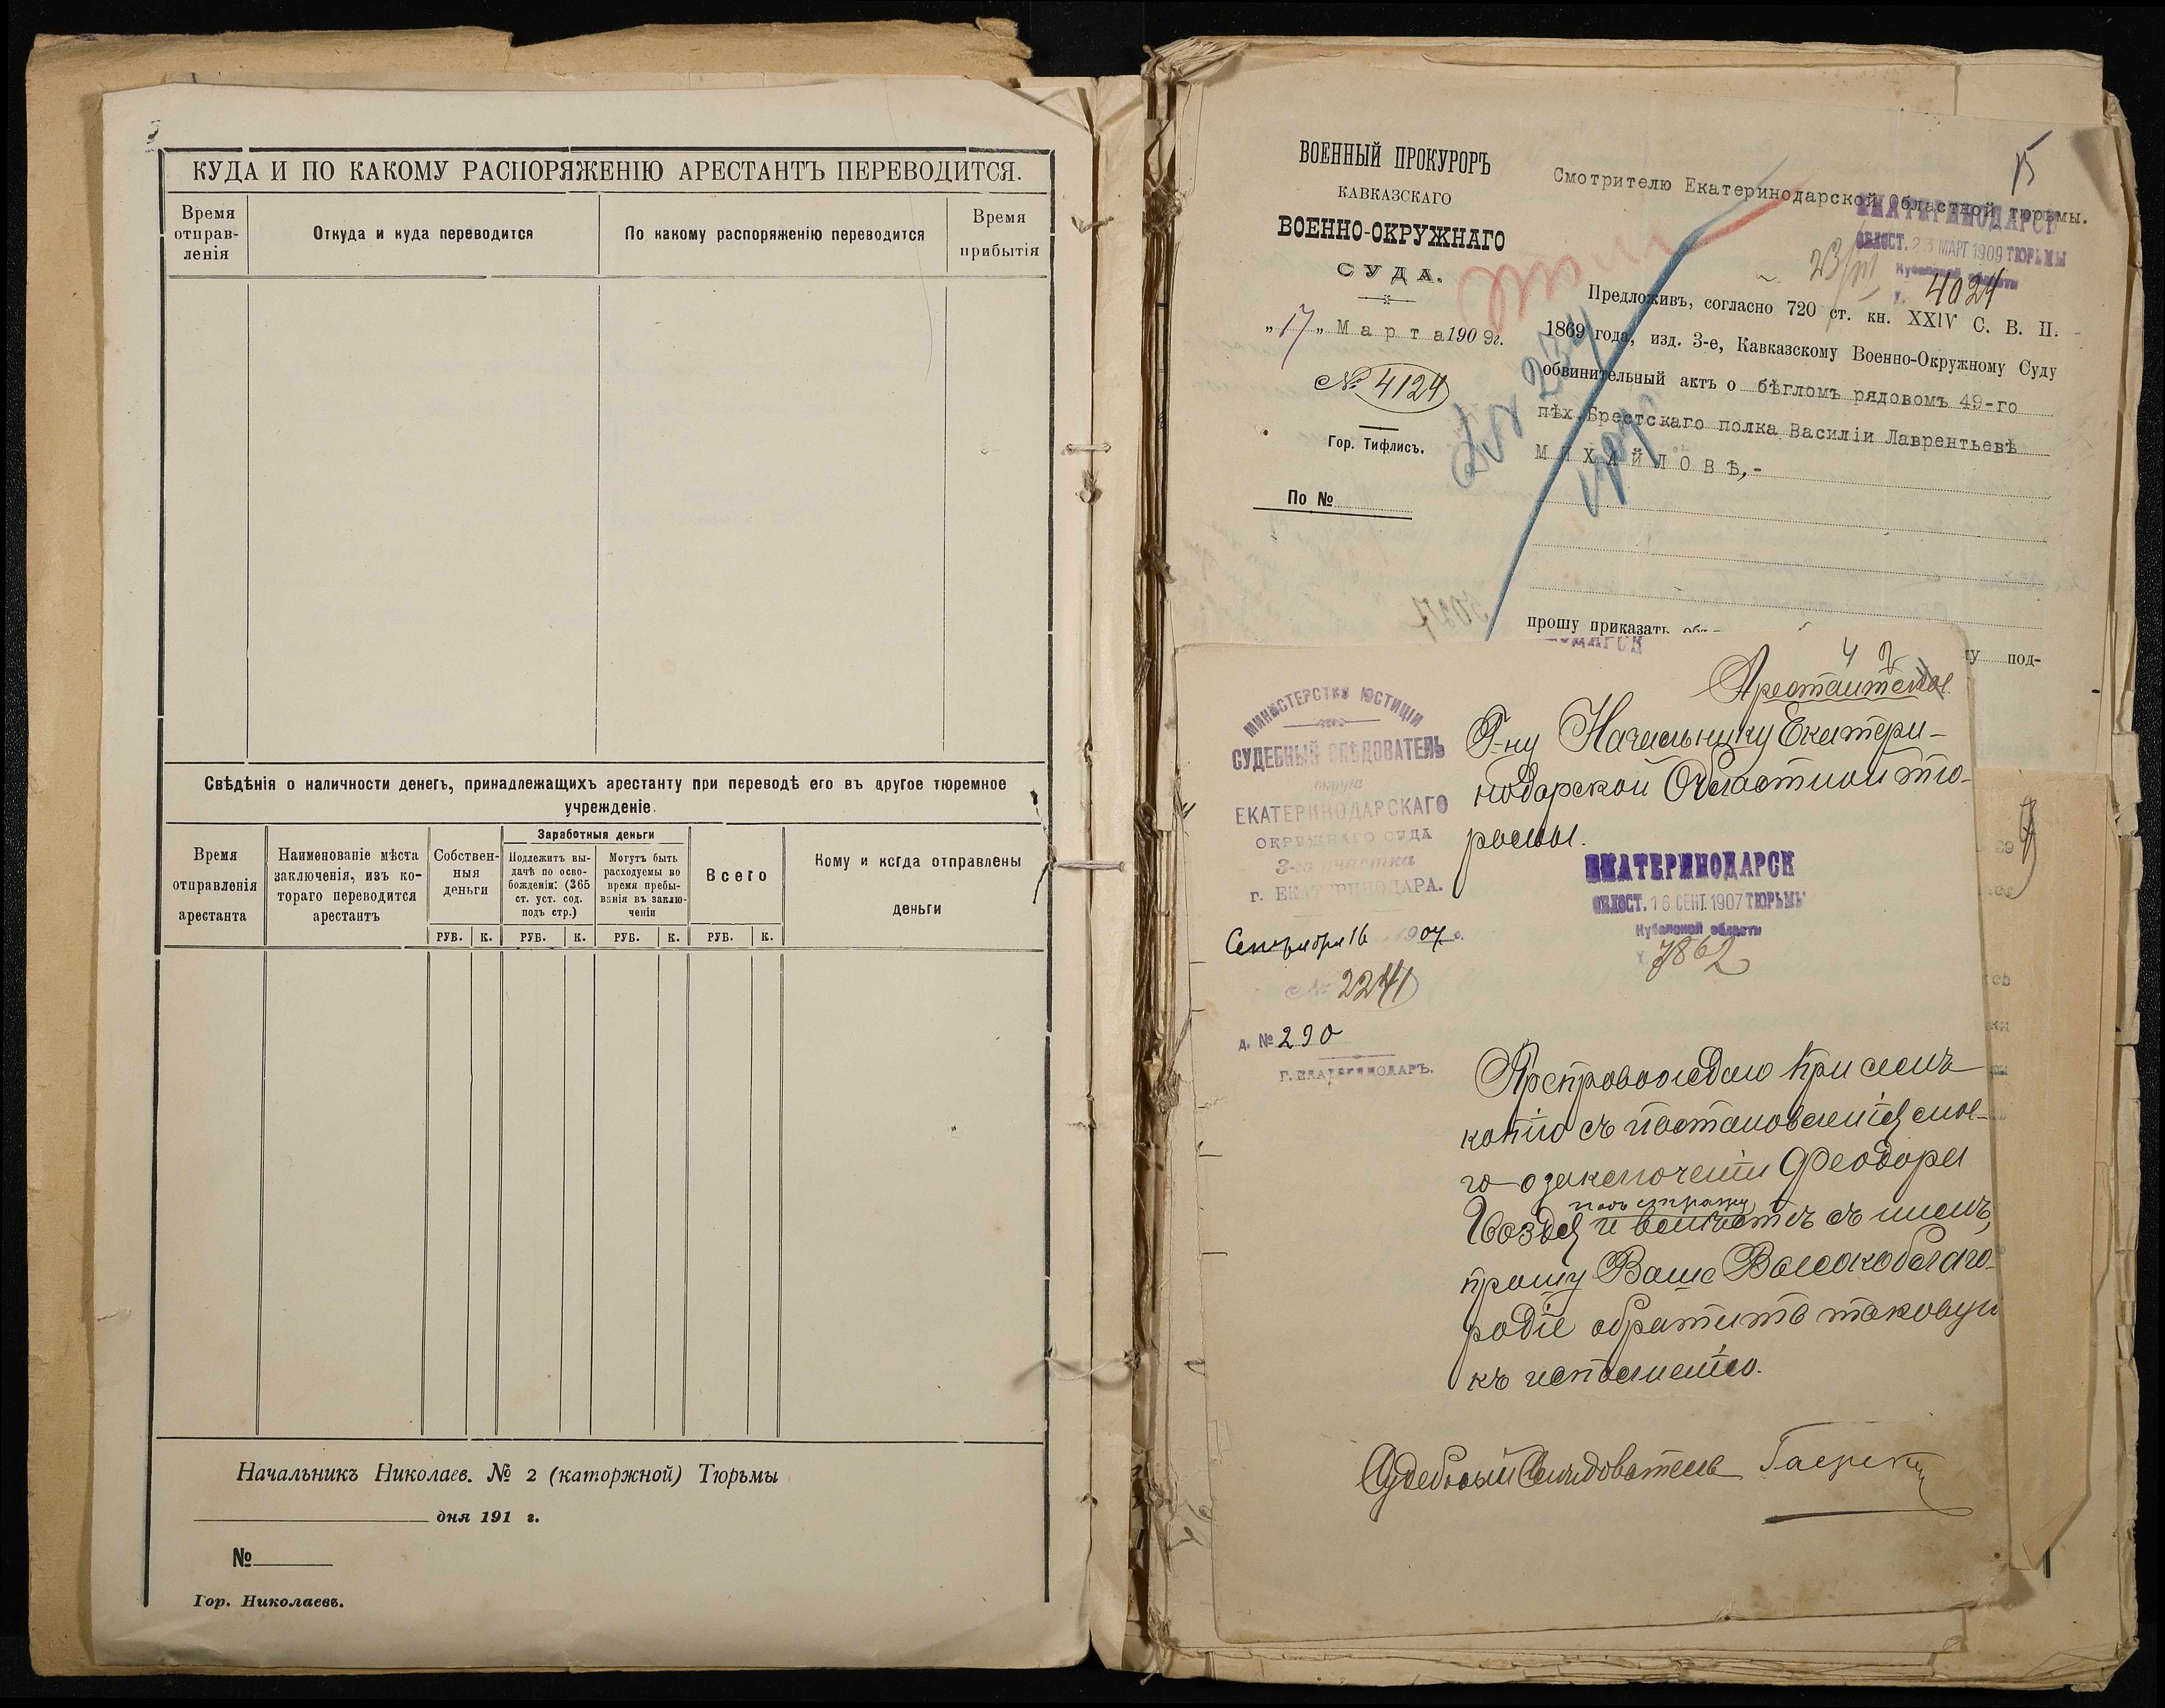 КУДА И ПО КАКОМУ РАСПОРЯЖЕНІЮ АРЕСТАНТЪ ПЕРЕВОДИТСЯ.
Время
отправ-
ленія
Откуда и куда переводится
По какому распоряженію переводится
Время
прибытія
Свѣдѣнія о наличности денегъ, принадлежащихъ арестанту при переводѣ его въ другое тюремное
учрежденіе.
Время
отправленія
арестанта
Наименованіе мѣста
заключенія, изъ ко-
тораго переводится
арестантъ
Собствен-
ныя
деньги
Заработныя деньги
Подлежитъ вы-
дачѣ по осво-
божденіи: (365
ст. уст. сод.
подъ стр.)
Могутъ быть
расходуемы во
время пребы-
ванія въ заклю-
ченіи
Всего
Кому и когда отправлены
деньги
РУБ. К. РУБ. К. РУБ. К. РУБ. К.
Начальникъ Николаев. № 2 (каторжной) Тюрьмы
дня 191 г.
№
Гор. Николаевъ.
15
ВОЕННЫЙ ПРОКУРОРЪ
КАВКАЗСКАГО
ВОЕННО-ОКРУЖНАГО
СУДА.
„17„ Марта 1909г.
№ 4124
Гор. Тифлисъ.
По №
Смотрителю Екатеринодарской Областной тюрьмы.
ЕКАТЕРИНОДАРСК
ОБЛАСТ. 23 МАРТ 1909 ТЮРЬМЫ
Кубанской области
23/III
4024
Предложивъ, согласно 720 ст. кн. XXIV С. В. П.
1869 года, изд. 3-е, Кавказскому Военно-Окружному Суду
обвинительный актъ о бѣгломъ рядовомъ 49-го
пѣх. Брестскаго полка Василіи Лаврентьевѣ
МИХАЙЛОВѢ,-
прошу приказать
под-
МИНИСТЕРСТВО ЮСТИЦІИ
СУДЕБНЫЙ СЛѢДОВАТЕЛЬ
округа
ЕКАТЕРИНОДАРСКАГО
ОКРУЖНАГО СУДА
3-го участка
г. ЕКАТЕРИНОДАРА.
Сентября 16 1907 г.
№ 2241
д. № 290
Г. ЕКАТЕРИНОДАРЪ.
Арестантская
Г-ну Начальнику Екатери-
нодарской Областной тю-
рьмы.
ЕКАТЕРИНОДАРСК
ОБЛАСТ. 16 СЕНТ. 1907 ТЮРЬМЫ
Кубанской области
7862
Препровождаю при семъ
копію съ постановленія мое-
го о заключеніи Феодора
подъ стражу
Гвоздя и вмѣстѣ съ симъ,
прошу Ваше Высокоблаго-
родіе обратить таковую
къ исполненію.
Судебный Слѣдователь